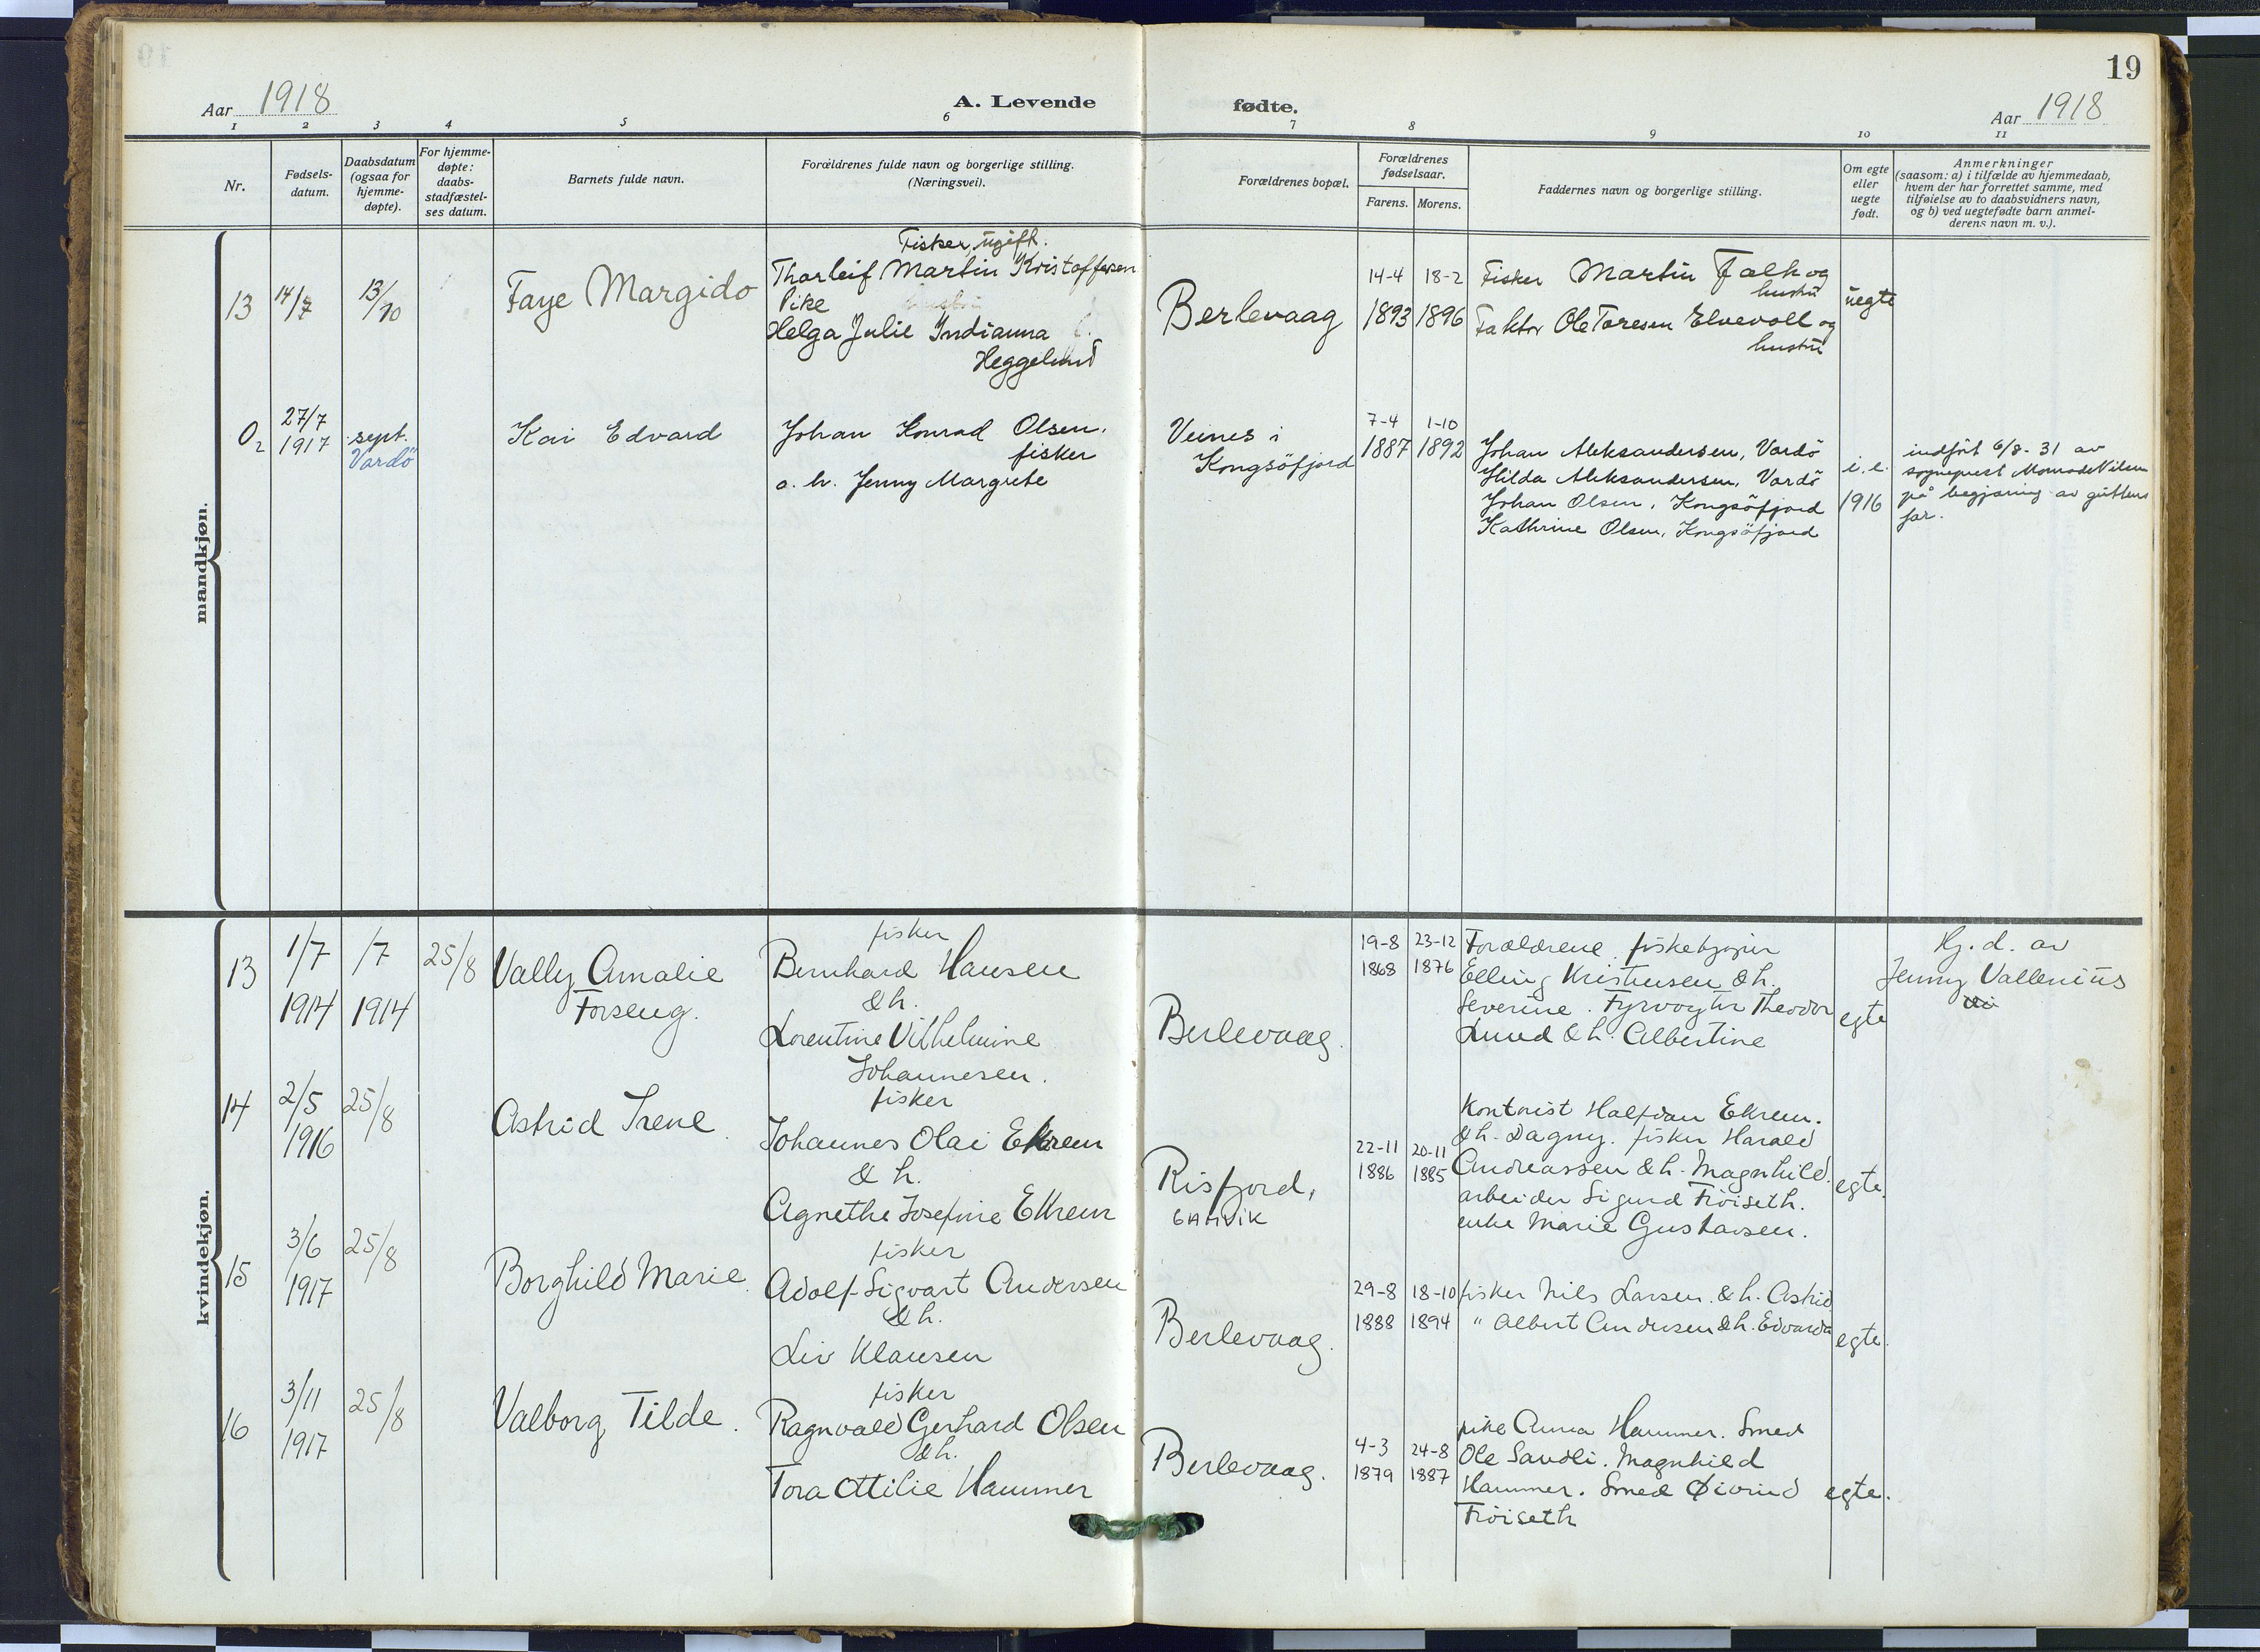 19
Aar 1918
A. Levende fødte.
Aar 1918
1 2 3 4 5 6 7 8 9 10 11
Nr.
Fødsels-
datum.
Daabsdatum
(ogsaa for
hjemme-
døpte).
For hjemme-
døpte:
daabs-
stadfæstel-
ses datum.
Barnets fulde navn.
Forældrenes fulde navn og borgerlige stilling.
(Næringsvei).
Forældrenes bopæl.
Forældrenes
fødselsaar.
Farens. Morens.
Faddernes navn og borgerlige stilling.
Om egte
eller
uegte
født.
Anmerkninger
(saasom: a) i tilfælde av hjemmedaab,
hvem der har forrettet samme, med
tilføielse av to daabsvidners navn,
og b) ved uegtefødte barn anmel-
derens navn m. v.).
mandkjøn.
13
14/7
13/10
Faye Margido
Fisker, ugift.
Thorleif Martin Kristoffersen
Pike
Helga Julie Indianna
Heggelund
Berlevaag
14-4
1893
18-2
1896
Fisker Martin Falk og
hustru
Faktor Ole Toresen Elvevoll og
hustru
uegte
O2
27/7
1917
sept.
Vardö
Kai Edvard
Johan Konrad Olsen,
fisker
o. h. Jenny Margrete
Veines i
Kongsöfjord
7-4
1887
1-10
1892
Johan Aleksandersen, Vardö
Hilda Aleksandersen, Vardö
Johan Olsen, Kongsöfjord
Kathrine Olsen, Kongsöfjord
i. e.
1916
indfört 6/8-31 av
sogneprest
på begjæring av guttens
far.
kvindekjøn.
13
1/7
1914
/7
1914
25/8
Vally Amalie
Forseng.
fisker
Bernhard Hansen
& h.
Lorentine Vilhelmine
Johannesen.
Berlevaag.
19-8
1868
23-12
1876
Forældrene, fiskekjøper
Elling Kristensen & h.
Severine. Fyrvogter Theodor
Lund & h. Albertine
egte
Hj. d. av
Jenny Vallenius
14
2/5
1916
25/8
Astrid Irene
fisker
Johannes Olai Ekrem
& h.
Agnethe Josefine Ekrem
Risfjord,
GAMVIK
22-11
1886
20-11
1885
Kontorist Halfdan Ekrem.
& h. Dagny. fisker Harald
Andreassen & h. Magnhild.
arbeider Sigurd Fröiseth.
enke Marie Gustavsen.
egte.
15
3/6
1917
25/8
Borghild Marie.
fisker
Adolf Sigvart Andersen
& h.
Liv Klausen
Berlevaag.
29-8
1888
18-10
1894
fisker Nils Larsen & h. Astrid
" Albert Andersen & h. Edvarda
egte.
16
3/11
1917
25/8
Valborg Tilde.
fisker
Ragnvald Gerhard Olsen
& h.
Tora Ottilie Hammer
Berlevaag.
4-3
1879
24-8
1887
pike Anna Hammer. Smed
Ole Sandli. Magnhild
Hammer. Smed Øivind
Fröiseth
egte.